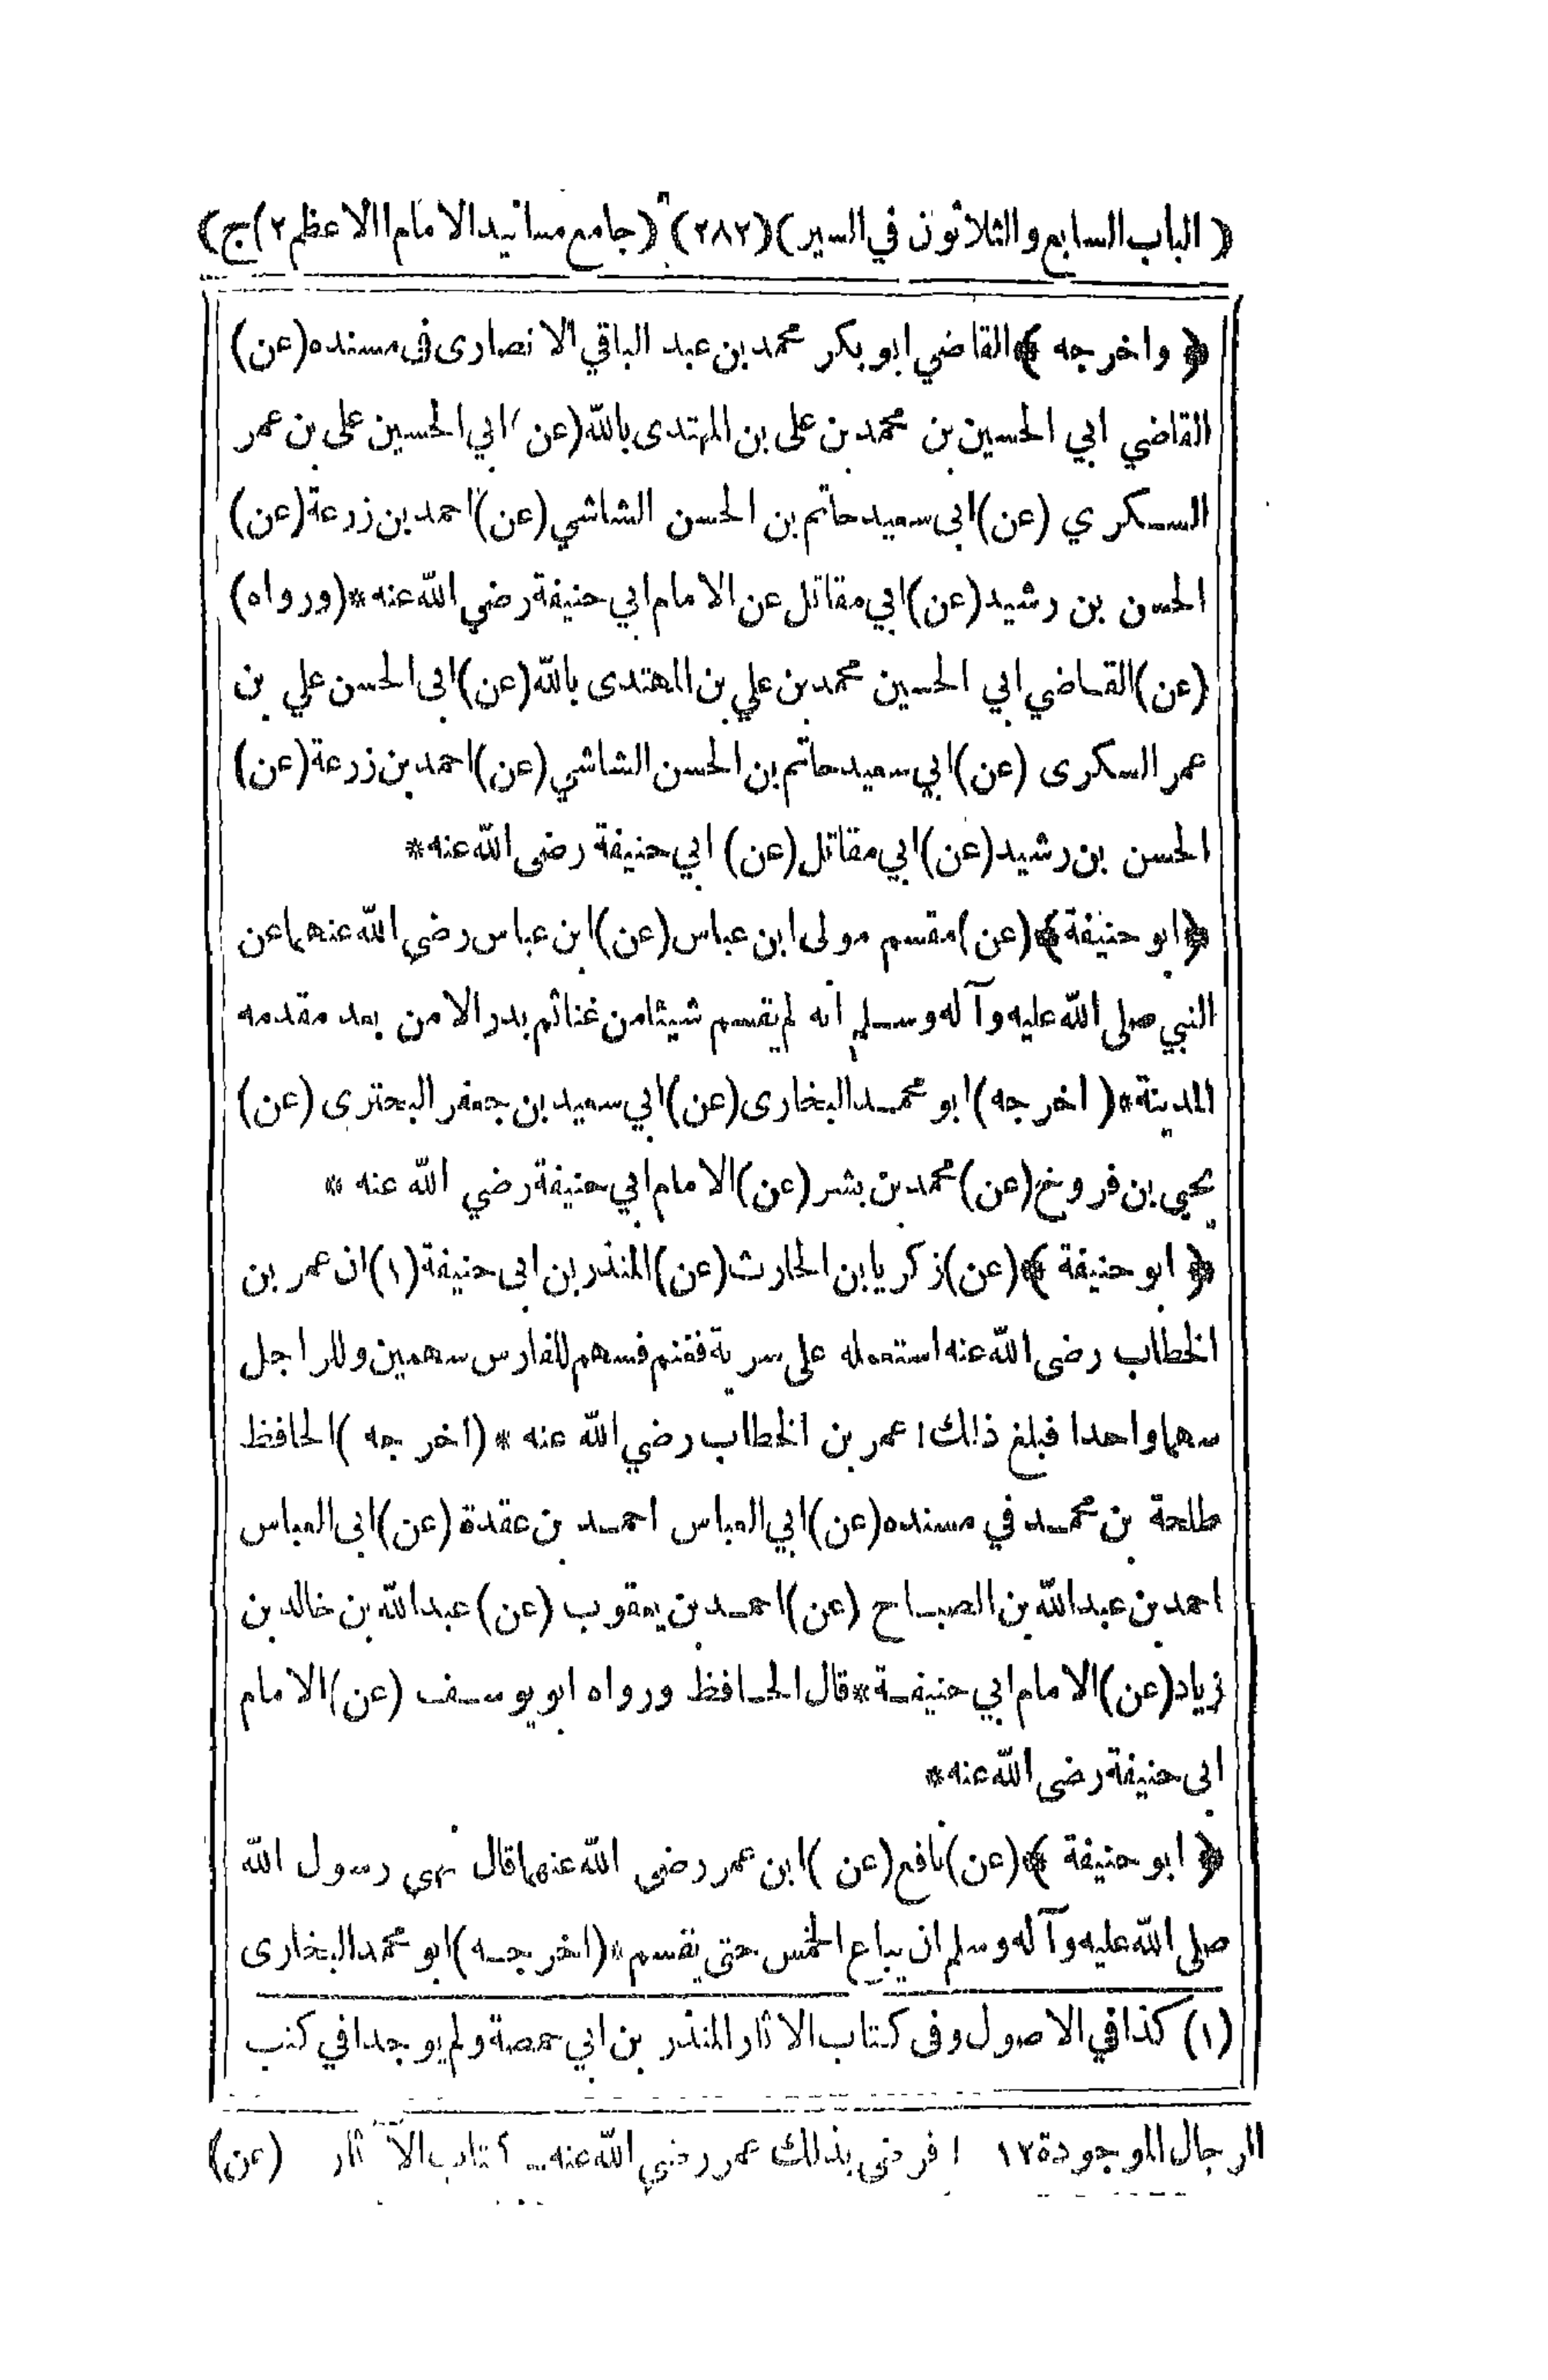 ( الباب السابع والثلاثون في السير ) (٢٨٢) ( جامع مسانيد الامام الاعظم ٢)ج)
﴿ واخرجه ﴾ القاضي ابو بكر محمد بن عبد الباقي الانصارى فى مسنده (عن)
القاضي ابي الحسين بن محمد بن على بن المهتدى بالله (عن ابي الحسين على بن عمر
السكري (عن) ابى سعيد حاتم بن الحسن الشاشي (عن) احمد بن زرعة (عن)
الحسن بن رشيد (عن) ابي مقاتل عن الامام ابي حنيفة رضي الله عنه * (ورواه)
(عن) القاضي ابي الحسين محمد بن علي بن المهتدى بالله (عن) ابى الحسن علي بن
عمر السكرى (عن) ابي سعيد حاتم بن الحسن الشاشي (عن) احمد بن زرعة (عن)
الحسن بن رشيد (عن) ابي مقاتل (عن) ابي حنيفة رضى الله عنه *
﴿ ابو حنيفة ﴾ (عن) مقسم مولى ابن عباس (عن) ابن عباس رضي الله عنهما عن
النبي صلى الله عليه وآله وسلم انه لم يقسم شيئا من غنائم بدر الا من بعد مقدمه
المدينة * ( اخرجه ) ابو محمد البخارى (عن) ابي سعيد بن جعفر البحترى (عن)
يحيى بن فروخ (عن) محمد بن بشر (عن) الامام ابي حنيفة رضي الله عنه *
﴿ ابو حنيفة ﴾ (عن) زكريا بن الحارث (عن) المنذر بن ابى حنيفة (١) ان عمر بن
الخطاب رضى الله عنه استعمله على سرية فغنم فسهم للفارس سهمين وللراجل
سهما واحدا فبلغ ذلك ا عمر بن الخطاب رضي الله عنه * (اخرجه) الحافظ
طلحة بن محمد في مسنده (عن) ابي العباس احمد بن عقدة (عن) ابى العباس
احمد بن عبد الله بن الصباح (عن) احمد بن يعقوب (عن) عبد الله بن خالد بن
زياد (عن) الامام ابي حنيفة * قال الحافظ ورواه ابو يوسف (عن) الامام
ابى حنيفة رضى الله عنه *
﴿ ابو حنيفة ﴾ (عن) نافع (عن) ابن عمر رضى الله عنهما قال نهي رسول الله
صلى الله عليه وآله وسلم ان يباع الخمس حتى يقسم * (اخرجه) ابو محمد البخارى
(١) كذا في الاصول وفى كتاب الاثار المنذر بن ابي حمصة ولم يوجدا في كتب
الرجال الموجودة ١٢ ا فرضى بذلك عمر رضي الله عنه _ كتاب الآثار (عن)